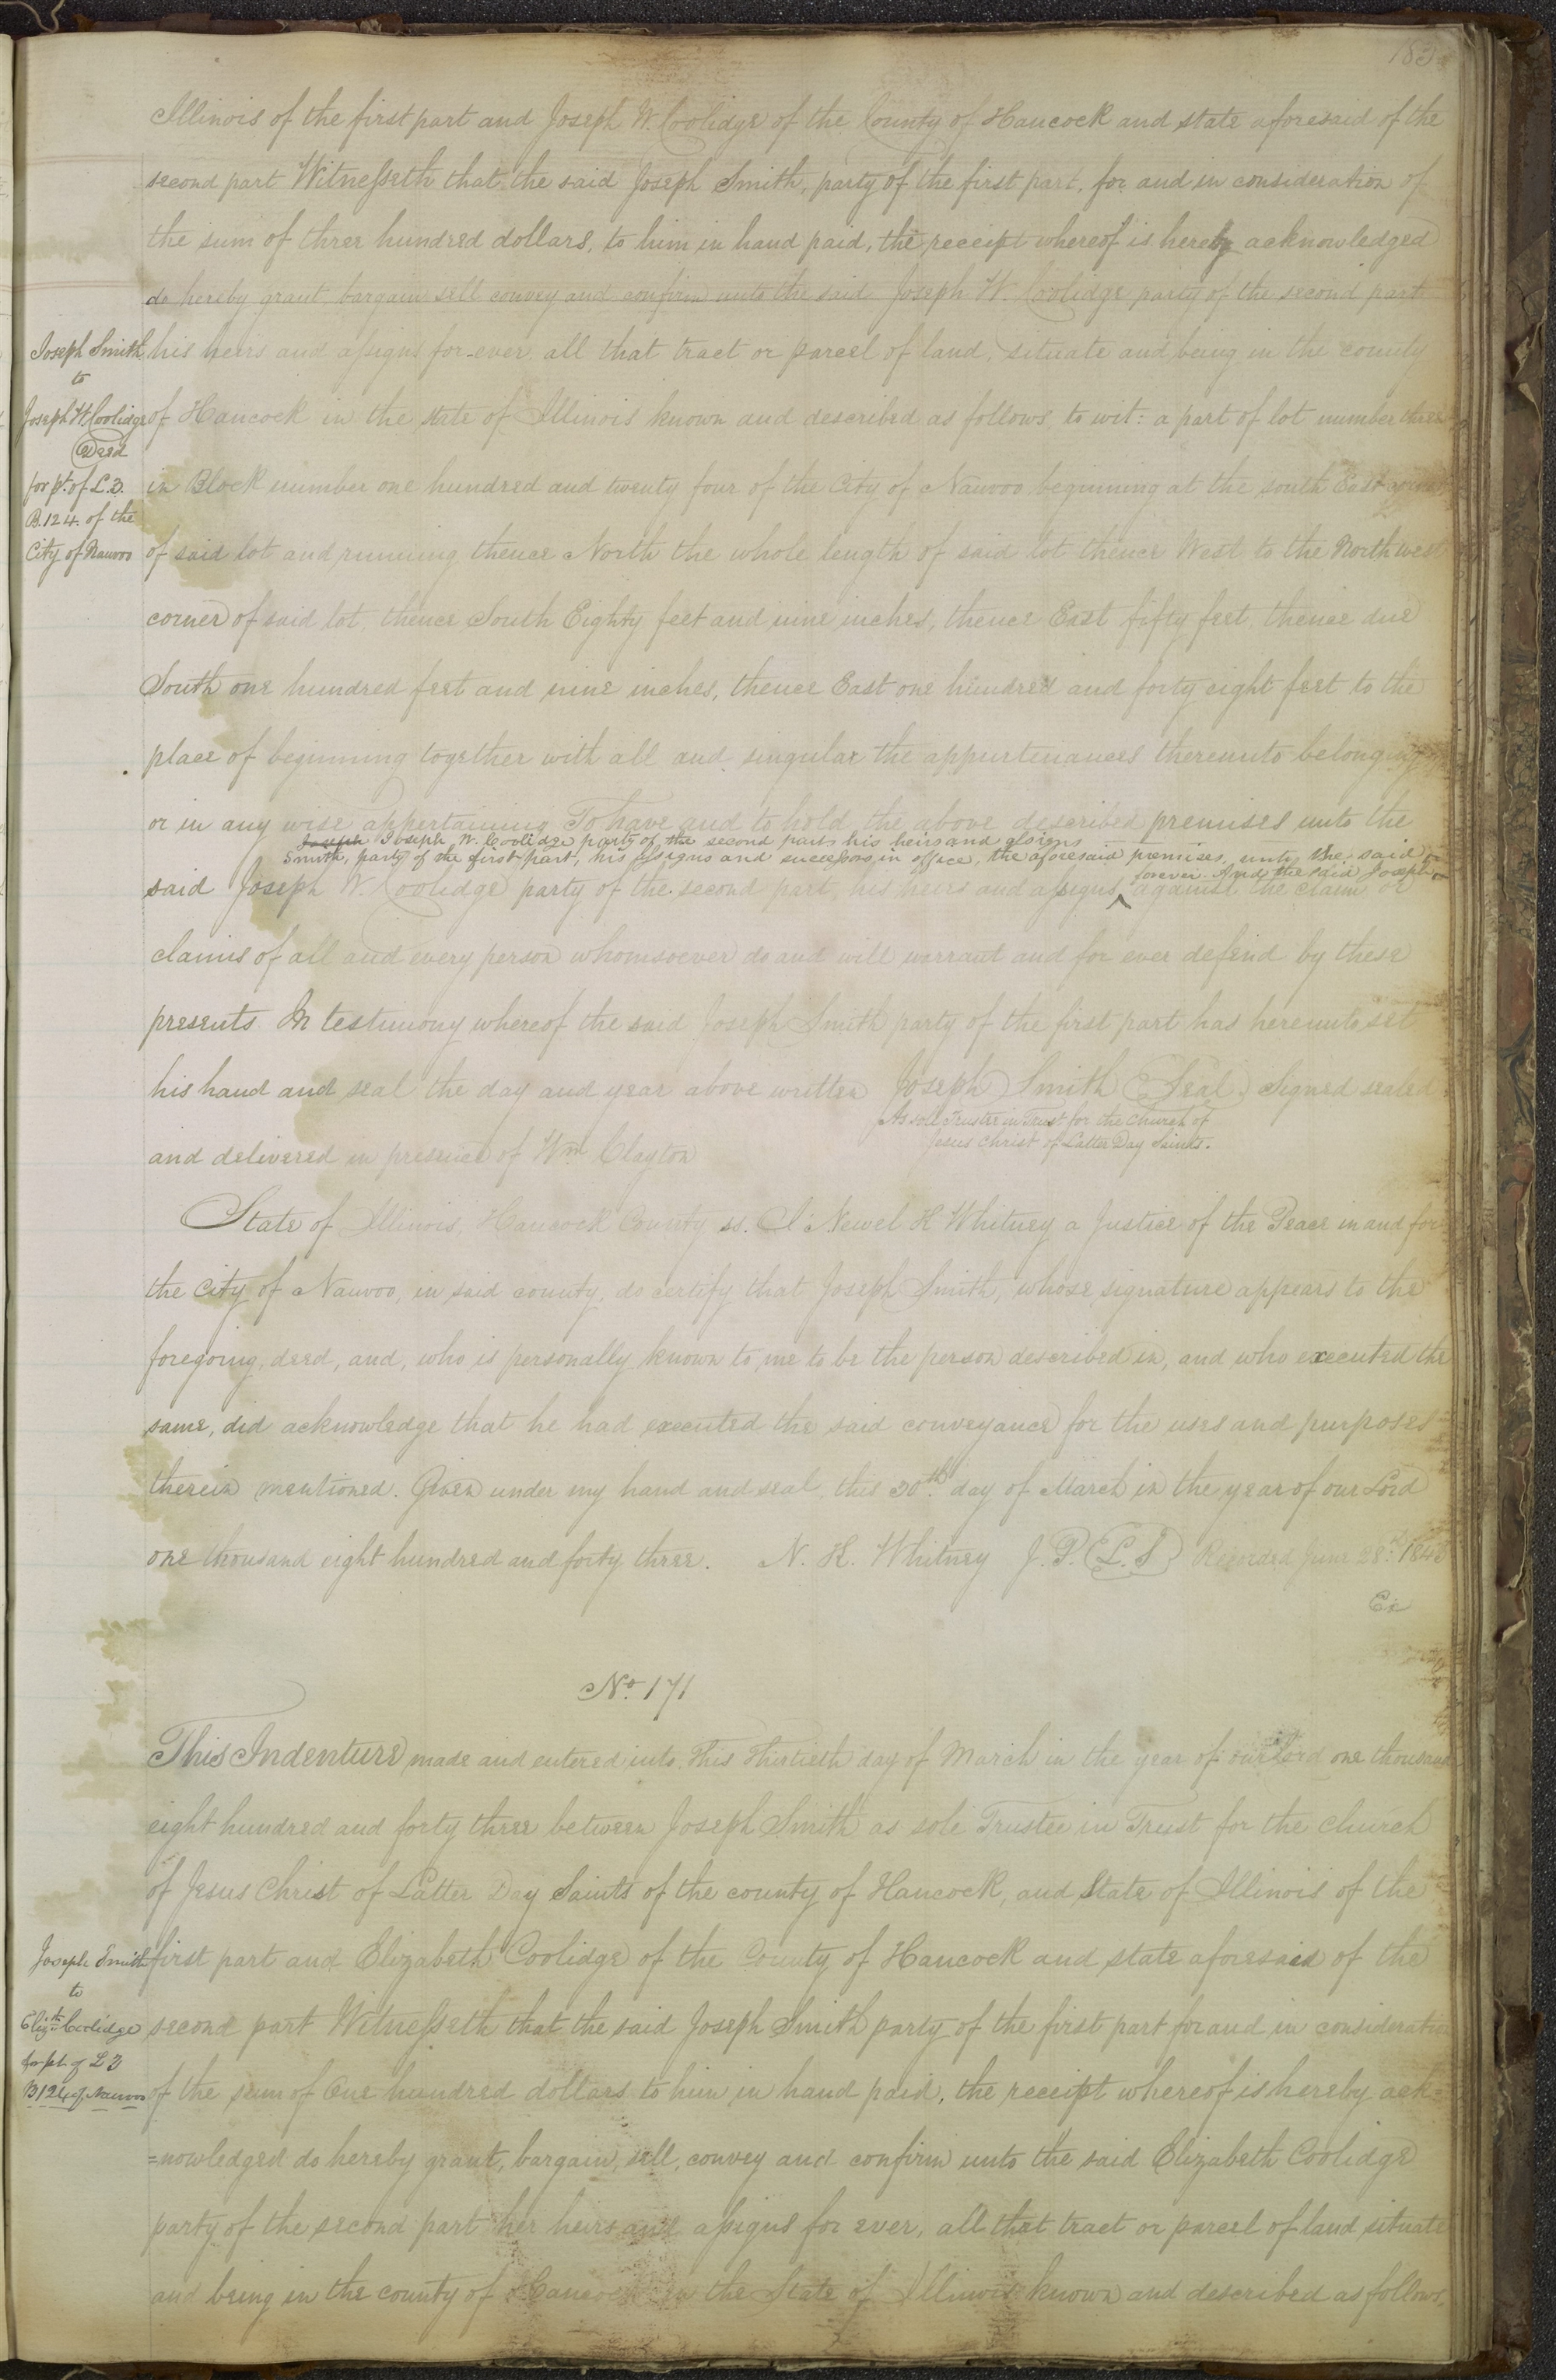 183
Illinois of the first part and Joseph W. Coolidge of the County of Hancock and state aforesaid of the
second part Witnesseth that the said Joseph Smith, party of the first part, for and in consideration of
the sum of three hundred dollars, to him in hand paid, the receipt whereof is hereby acknowledged
do hereby grant, bargain sell convey and confirm unto the said Joseph W. Coolidge party of the second part
Joseph Smith
to
Joseph W Coolidge
Deed
for pt. of L. 3.
B. 124. of the
City of Nauvoo
his heirs and assigns for-ever, all that tract or parcel of land, situate and being in the county
of Hancock in the state of Illinois known and described as follows, to wit: a part of lot number three
in Block number one hundred and twenty four of the City of Nauvoo beginning at the south East corner
of said lot and running thence North the whole length of said lot thence West to the North west
corner of said lot, thence South Eighty feet and nine inches, thence East fifty feet, thence due
South one hundred feet and nine inches, thence East one hundred and forty eight feet to the
place of beginning together with all and singular the appurtenances thereunto belonging
or in any wise appertaining To have and to hold the above described premises unto the
Joseph Joseph W. Coolidge party of the second part his heirs and assigns
Smith, party of the first part, his assigns and successors in office, the aforesaid premises, unto the said
forever. And the said Joseph
said Joseph W. Coolidge party of the second part, his heirs and assigns ^ against the claim or
claims of all and every person whomsoever do and will warrant and for ever defend by these
presents In testimony whereof the said Joseph Smith party of the first part has hereunto set
his hand and seal the day and year above written Joseph Smith (Seal) Signed sealed
As sole Trustee in Trust for the Church of
Jesus Christ of Latter Day Saints.
and delivered in presence of Wm Clayton
State of Illinois, Hancock County ss. I Newel K Whitney a Justice of the Peace in and for
the City of Nauvoo, in said county, do certify that Joseph Smith, whose signature appears to the
foregoing, deed, and, who is personally known to me to be the person described in, and who executed the
same, did acknowledge that he had executed the said conveyance for the uses and purposes
therein mentioned. Given under my hand and seal, this 30th day of March in the year of our Lord
one thousand eight hundred and forty three. N. K. Whitney J. P. (L. S) Recorded June 28th 1843
Ex
No. 171
This Indenture made and entered into this thirtieth day of March in the year of our Lord one thousand
eight hundred and forty three between Joseph Smith as sole Trustee in Trust for the Church
of Jesus Christ of Latter Day Saints of the county of Hancock, and State of Illinois of the
Joseph Smith
to
Elizth Coolidge
for pt. of L 3
B 124 of Nauvoo
first part and Elizabeth Coolidge of the County of Hancock and state aforesaid of the
second part Witnesseth that the said Joseph Smith party of the first part for and in consideration
of the sum of One hundred dollars to him in hand paid, the receipt whereof is hereby ack=
=nowledged do hereby grant, bargain, sell, convey and confirm unto the said Elizabeth Coolidge
party of the second part her heirs and assigns for ever, all that tract or parcel of land situate
and being in the county of Hancock in the State of Illinois known and described as follows,